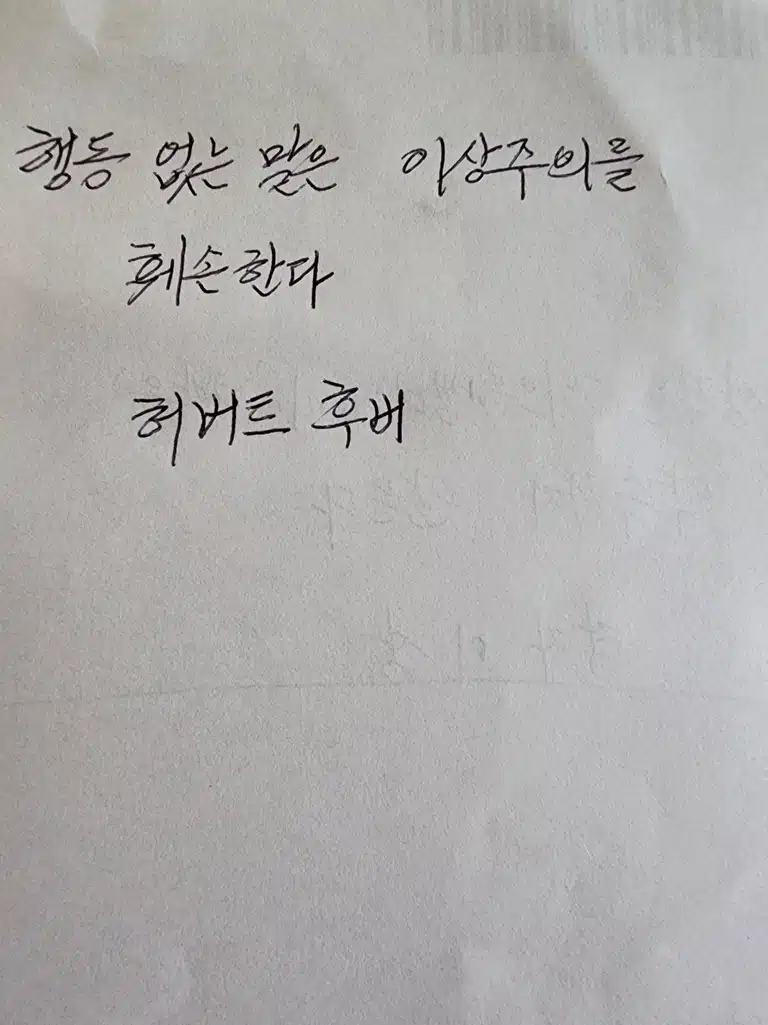 행동 없는 말은 이상주의를
훼손한다
허버트 후버